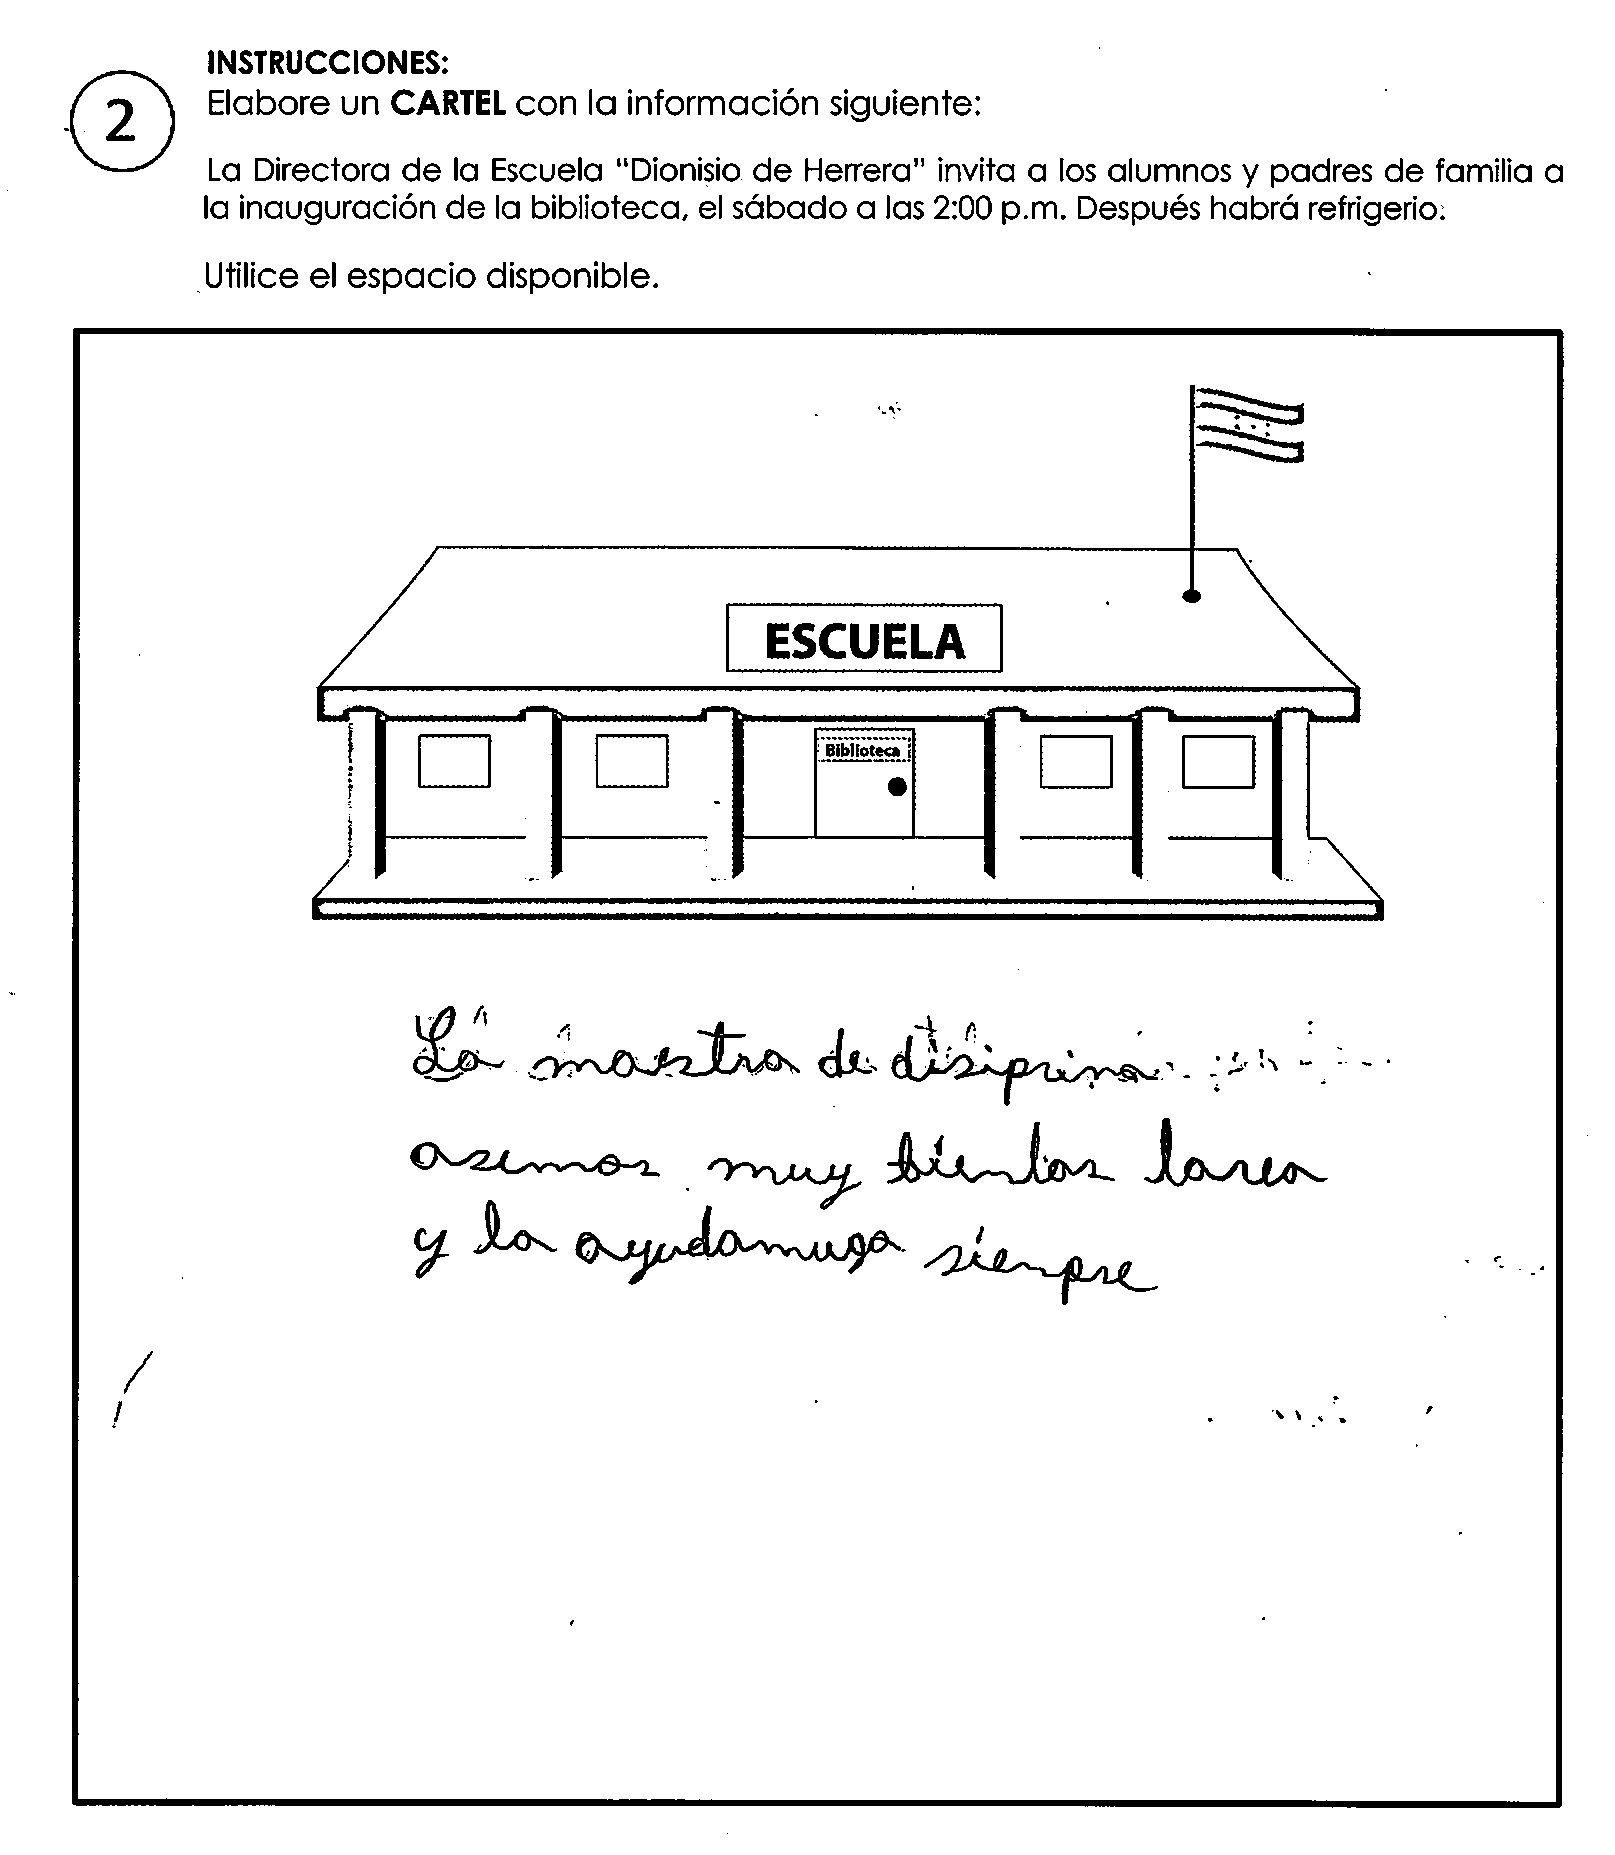 INSTRUCCIONES:
2
Elabore un CARTEL con la información siguiente:
La Directora de la Escuela "Dionisio de Herrera" invita a los alumnos y padres de familia a
la inauguración de la biblioteca, el sábado a las 2:00 p.m. Después habrá refrigerio.
Utilice el espacio disponible.
ESCUELA
Biblioteca
La maestra de disiprina
asemos muy bien las tarea
y la ayudamuga siempre